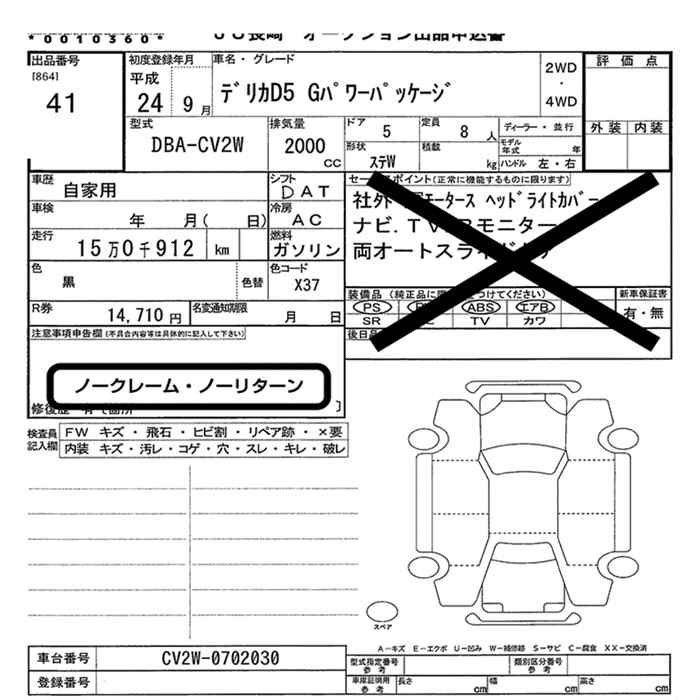 *0010360*
ＪＵ長崎 オークション出品申込書
出品番号
[864]
41
初度登録年月
平成
24 9月
車名・グレード
ﾃﾞﾘｶD5 Gﾊﾟﾜｰﾊﾟｯｹｰｼﾞ
2WD
・
4WD
評価点
外装 内装
型式
DBA-CV2W
排気量
2000
CC
ドア
5
定員
8 人
ディーラー・並行
モデル年式 年
形状
ｽﾃW
積載
kg
ハンドル 左・右
車歴 自家用
シフト
DAT
車検 年 月( 日)
冷房
AC
走行 15万0千912 km
燃料
ガソリン
色
黒
色替
色コード
X37
R券 14,710 円
名変通知期限
月 日
セールスポイント(正常に機能するものに限ります)
社外 モータース ﾍｯﾄﾞﾗｲﾄｶﾊﾞｰ
ナビ．ＴＶ モニター
両オートスライドドア
装備品 (純正品に つけてください)
新車保証書
PS ABS エアB
有・無
SR TV カワ
後日品
注意事項申告欄(不具合内容等は具体的に記入して下さい)
ノークレーム・ノーリターン
修復歴 有 箇所 〕
検査員
記入欄
FW キズ・飛石・ヒビ割・リペア跡・×要
内装 キズ・汚レ・コゲ・穴・スレ・キレ・破レ
スペア
A－キズ E－エクボ U－凹み W－補修跡 S－サビ C－腐食 XX－交換済
車台番号 CV2W-0702030
登録番号
型式指定番号
参考
類別区分番号
参考
車庫証明用
参考
長さ cm
幅 cm
高さ cm